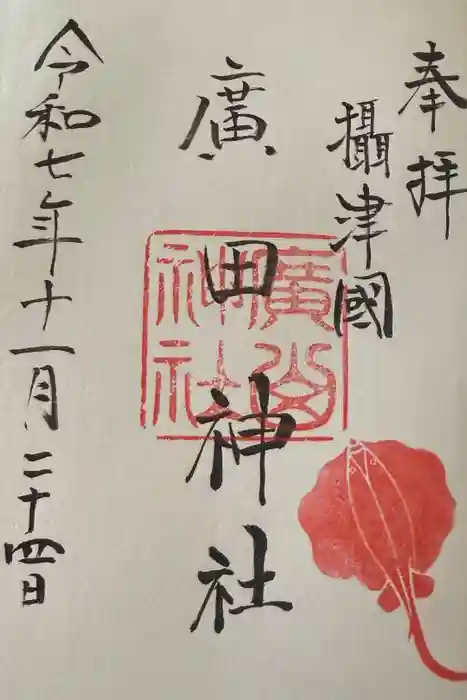 奉拝
攝津國
廣田神社
令和七年十一月二十四日